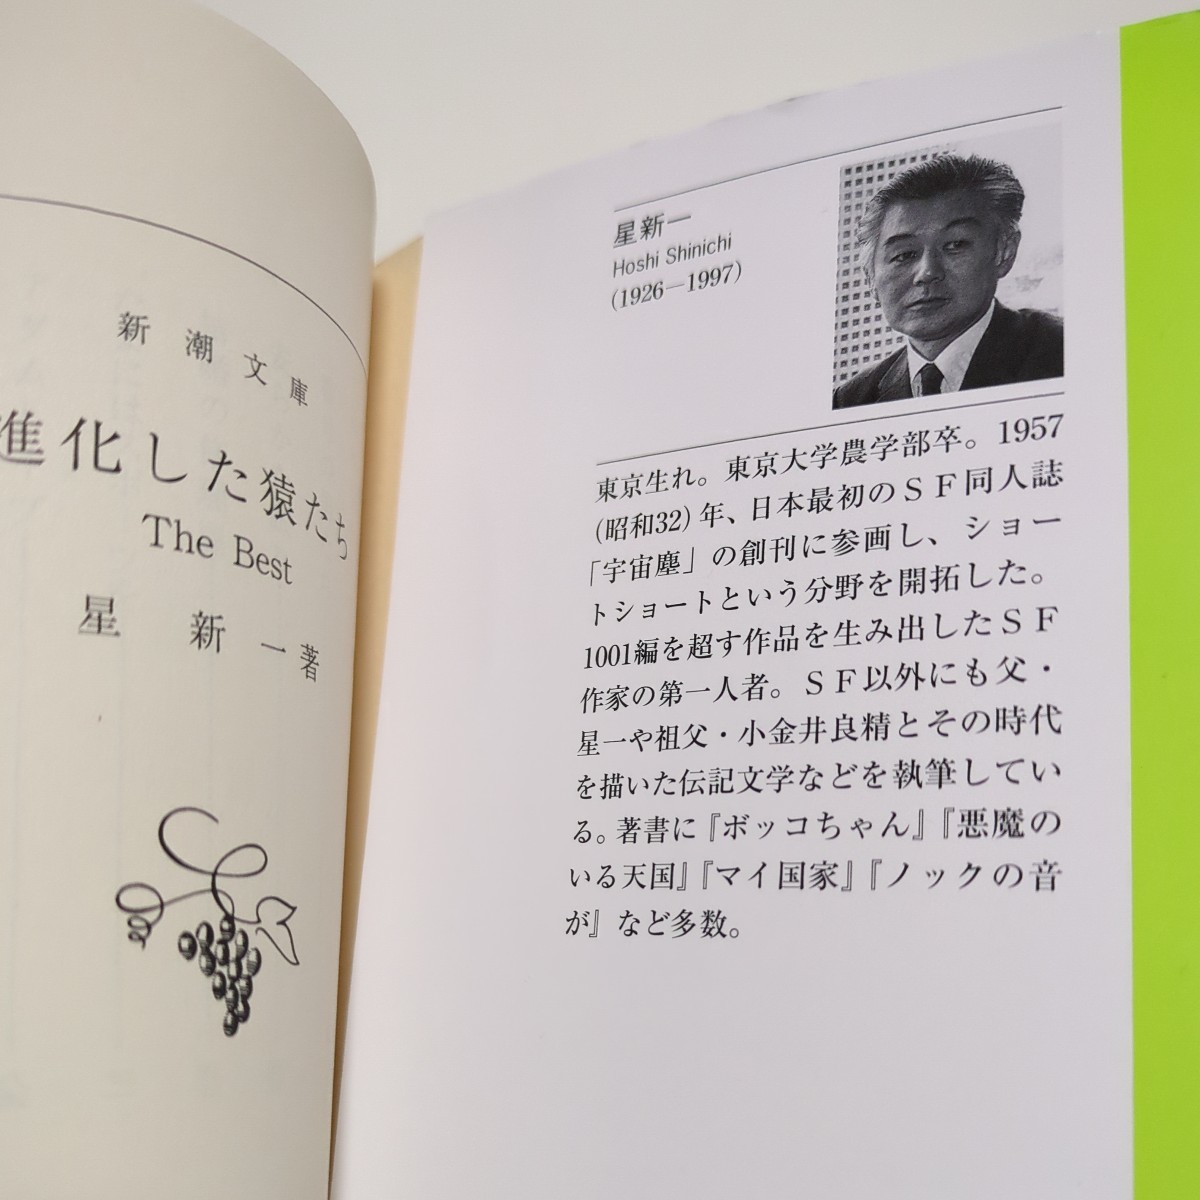 新潮文庫
進化した猿たち
The Best
星 新一著
星新一
Hoshi Shinichi
(1926―1997)
東京生れ。東京大学農学部卒。1957
(昭和32)年、日本最初のＳＦ同人誌
「宇宙塵」の創刊に参画し、ショー
トショートという分野を開拓した。
1001編を超す作品を生み出したＳＦ
作家の第一人者。ＳＦ以外にも父・
星一や祖父・小金井良精とその時代
を描いた伝記文学などを執筆してい
る。著書に『ボッコちゃん』『悪魔の
いる天国』『マイ国家』『ノックの音
が』など多数。